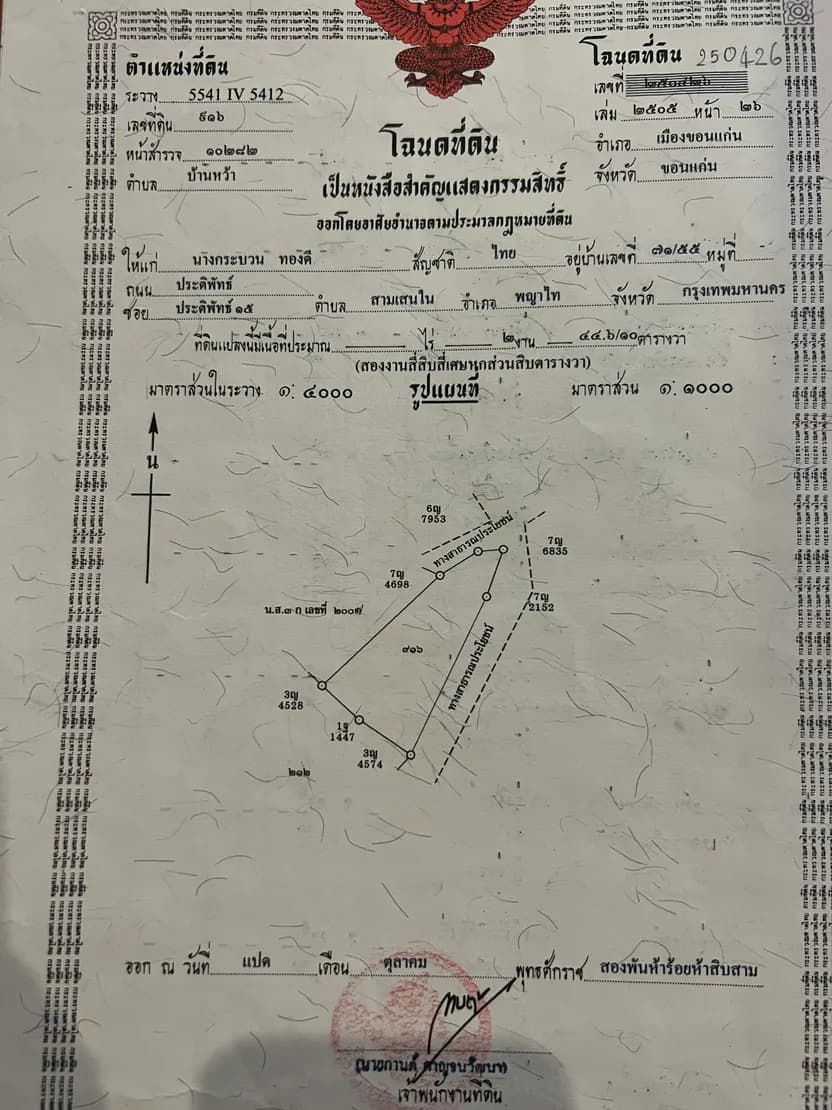 ตำแหน่งที่ดิน
ระวาง 5541 IV 5412
เลขที่ดิน ๙๑๖
หน้าสำรวจ ๑๐๒๘๒
ตำบล บ้านหว้า
โฉนดที่ดิน
เลขที่ 250426
เล่ม ๒๕๐๕ หน้า ๒๖
อำเภอ เมืองขอนแก่น
จังหวัด ขอนแก่น
โฉนดที่ดิน
เป็นหนังสือสำคัญแสดงกรรมสิทธิ์
ออกโดยอาศัยอำนาจตามประมวลกฎหมายที่ดิน
ให้แก่ นางกระบวน ทองดี สัญชาติ ไทย อยู่บ้านเลขที่ ๗๑/๕๕ หมู่ที่
ถนน ประดิพัทธ์
ซอย ประดิพัทธ์ ๑๕ ตำบล สามเสนใน อำเภอ พญาไท จังหวัด กรุงเทพมหานคร
ที่ดินแปลงนี้มีเนื้อที่ประมาณ ไร่ ๒ งาน ๔๔.๖/๑๐ ตารางวา
(สองงานสี่สิบสี่เศษหกส่วนสิบตารางวา)
มาตราส่วนในระวาง ๑: ๔๐๐๐ รูปแผนที่ มาตราส่วน ๑: ๑๐๐๐
น
6ญ
7953
ทางสาธารณประโยชน์
7ญ
6835
7ญ
4698
7ญ
2152
น.ส.๓ ก เลขที่ ๒๐๐๗
๙๑๖
ทางสาธารณประโยชน์
3ญ
4528
1447
3ญ
4574
๒๑๒
ออก ณ วันที่ แปด เดือน ตุลาคม พุทธศักราช สองพันห้าร้อยห้าสิบสาม
เจ้าพนักงานที่ดิน